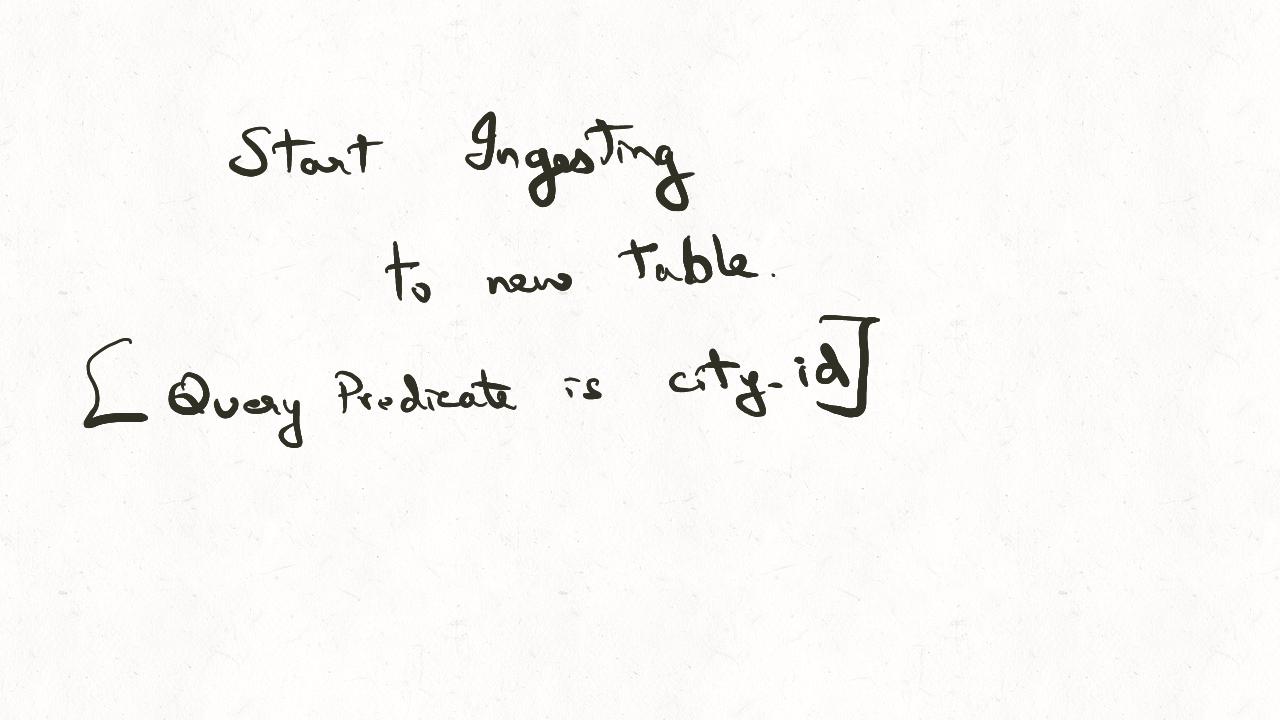 Start Ingesting
to new table.
[Query Predicate is city_id]